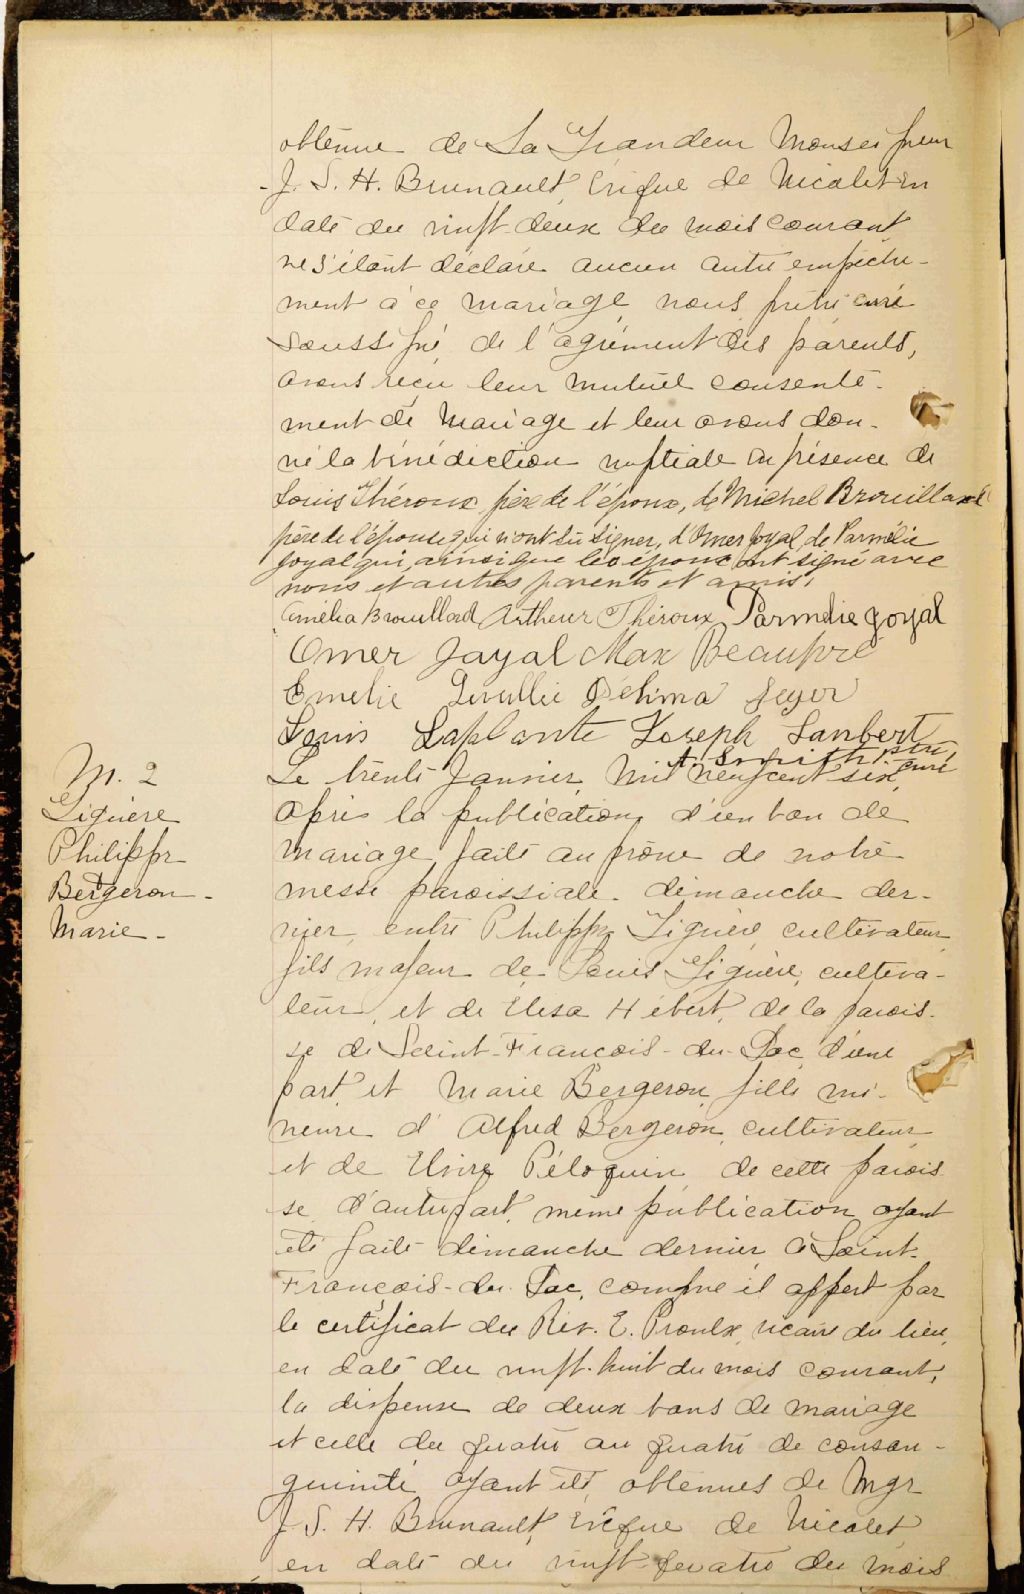 obtenue de Sa Grandeur Monseigneur
J. S. H. Brunault, Evêque de Nicolet en
date du vingt-deux du mois courant
ne s'étant déclaré aucun autre empêche-
ment à ce mariage, nous prêtre curé
soussigné, de l'agrément des parents,
avons reçu leur mutuel consente-
ment de mariage et leur avons don-
né la bénédiction nuptiale en présence de
Louis Théroux père de l'époux, de Michel Brouillard
père de l'épouse qui n'ont su signer, d'Omer Joyal, de Parmélie
Joyal qui, ainsi que les époux ont signé avec
nous et autres parents et amis.
Amélia Brouillard Arthur Théroux Parmelie Joyal
Omer Joyal Max Beaupré
Emelie Délima
Louis Laplante Joseph Lambert
A. Smith ptre, curé
M. 2
Giguère
Philippe
Bergeron -
Marie -
Le trente Janvier, mil neuf cent six,
après la publication d'un ban de
mariage, faite au prône de notre
messe paroissiale dimanche der-
nier, entre Philippe Giguère, cultivateur,
fils majeur de Louis Giguère, cultiva-
teur, et de Elisa Hébert, de la parois-
se de Saint-François-du-Lac, d'une
part, et Marie Bergeron, fille mi-
neure d'Alfred Bergeron, cultivateur
et de Elmire Péloquin, de cette parois-
se, d'autre part, même publication ayant
été faite dimanche dernier à Saint-
François-du-Lac, comme il appert par
le certificat du Rév. E. Proulx, vicaire du lieu,
en date du vingt-huit du mois courant,
la dispense de deux bans de mariage
et celle du quatre au quatre de consan-
guinité ayant été obtenues de Mgr
J. S. H. Brunault, Evêque de Nicolet
en date du vingt-quatre du mois